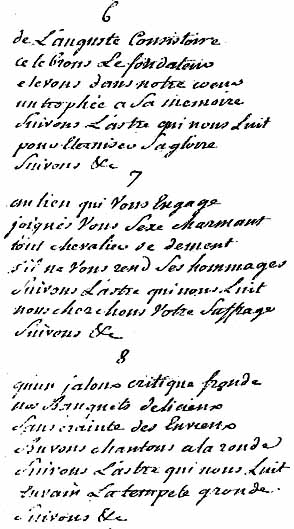 6
de L'auguste Consistoire
ce le brons Le fondateur
elevons dans notre coeur
un trophée a Sa memoire
Suivons L'astre qui nous Luit
pour Eterniser Sa gloire
Suivons &c
7
au lien qui Vous Engage
joignés Vous Sexe charmant
tout chevalier se dement
s'il ne Vous rend Ses hommages
Suivons L'astre qui nous Luit
nous cherchons Votre Suffrage
Suivons &c
8
qu'un jaloux critique fronde
nos Banquets delicieux
Sans crainte des Envieux
Buvons chantons a la ronde
Suivons L'astre qui nous Luit
En vain La tempete gronde
Suivons &c